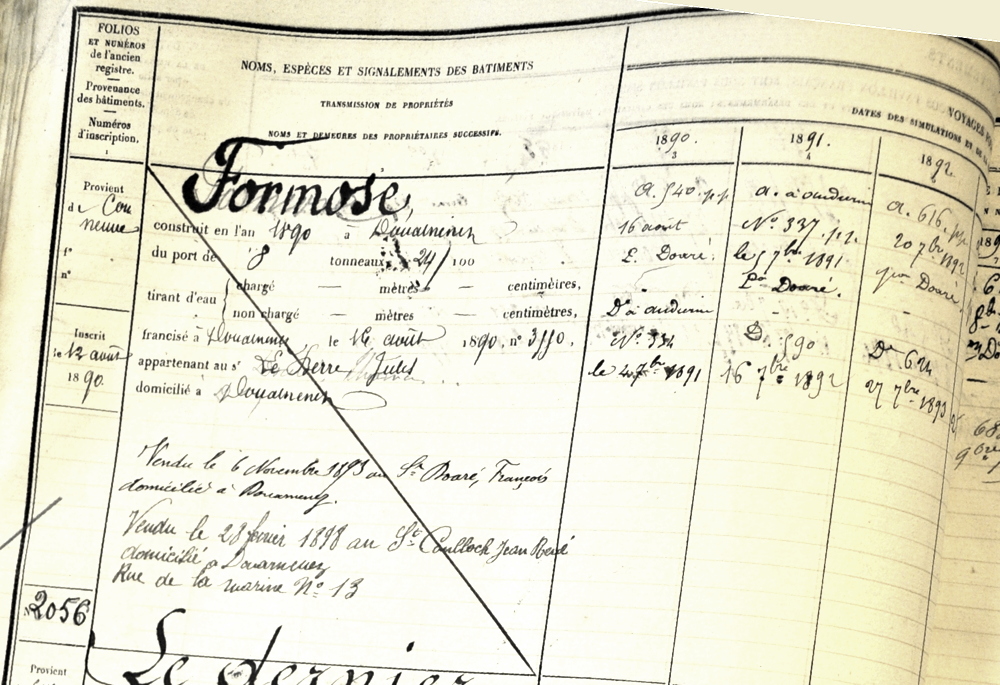 FOLIOS
ET NUMÉROS
de l'ancien
registre.
Provenance
des bâtiments.
Numéros
d'inscription.
1
NOMS, ESPÈCES ET SIGNALEMENTS DES BATIMENTS
TRANSMISSION DE PROPRIÉTÉS
NOMS ET DEMEURES DES PROPRIÉTAIRES SUCCESSIFS.
VOYAGES
DATES DES SIMULATIONS ET
1890.
3
1891.
4
1892
Provient
de Con
neuve
f°
n°
Inscrit
le 12 août
1890.
Formose,
construit en l'an 1890 à Douarnenez
du port de 8 tonneaux 24/100
tirant d'eau
chargé — mètres — centimèires,
non chargé — mètres — centimètres,
francisé à Douarnenez le 16 août 1890, n° 3110,
appartenant au sr Le Berre Jules
domicilié à Douarnenez
Vendu le 6 Novembre 1893 au Sr Doaré, François
domicilié à Douarnenez.
Vendu le 28 février 1898 au Sr Coulloch Jean René
domicilié a Douarnenez
Rue de la marine N° 13
A. 540. p.p
16 août
E. Doaré.
D a audierne
N° 334
le 4 7bre 1891
a. à audierne
N° 337. p.p.
le 5 7bre 1891
Doaré.
D. 590
16 7bre 1892
A. 616. pp
20 7bre 1892
Doaré
D. 624
27 7bre 1893
N° 2056
Provient
Le dernier